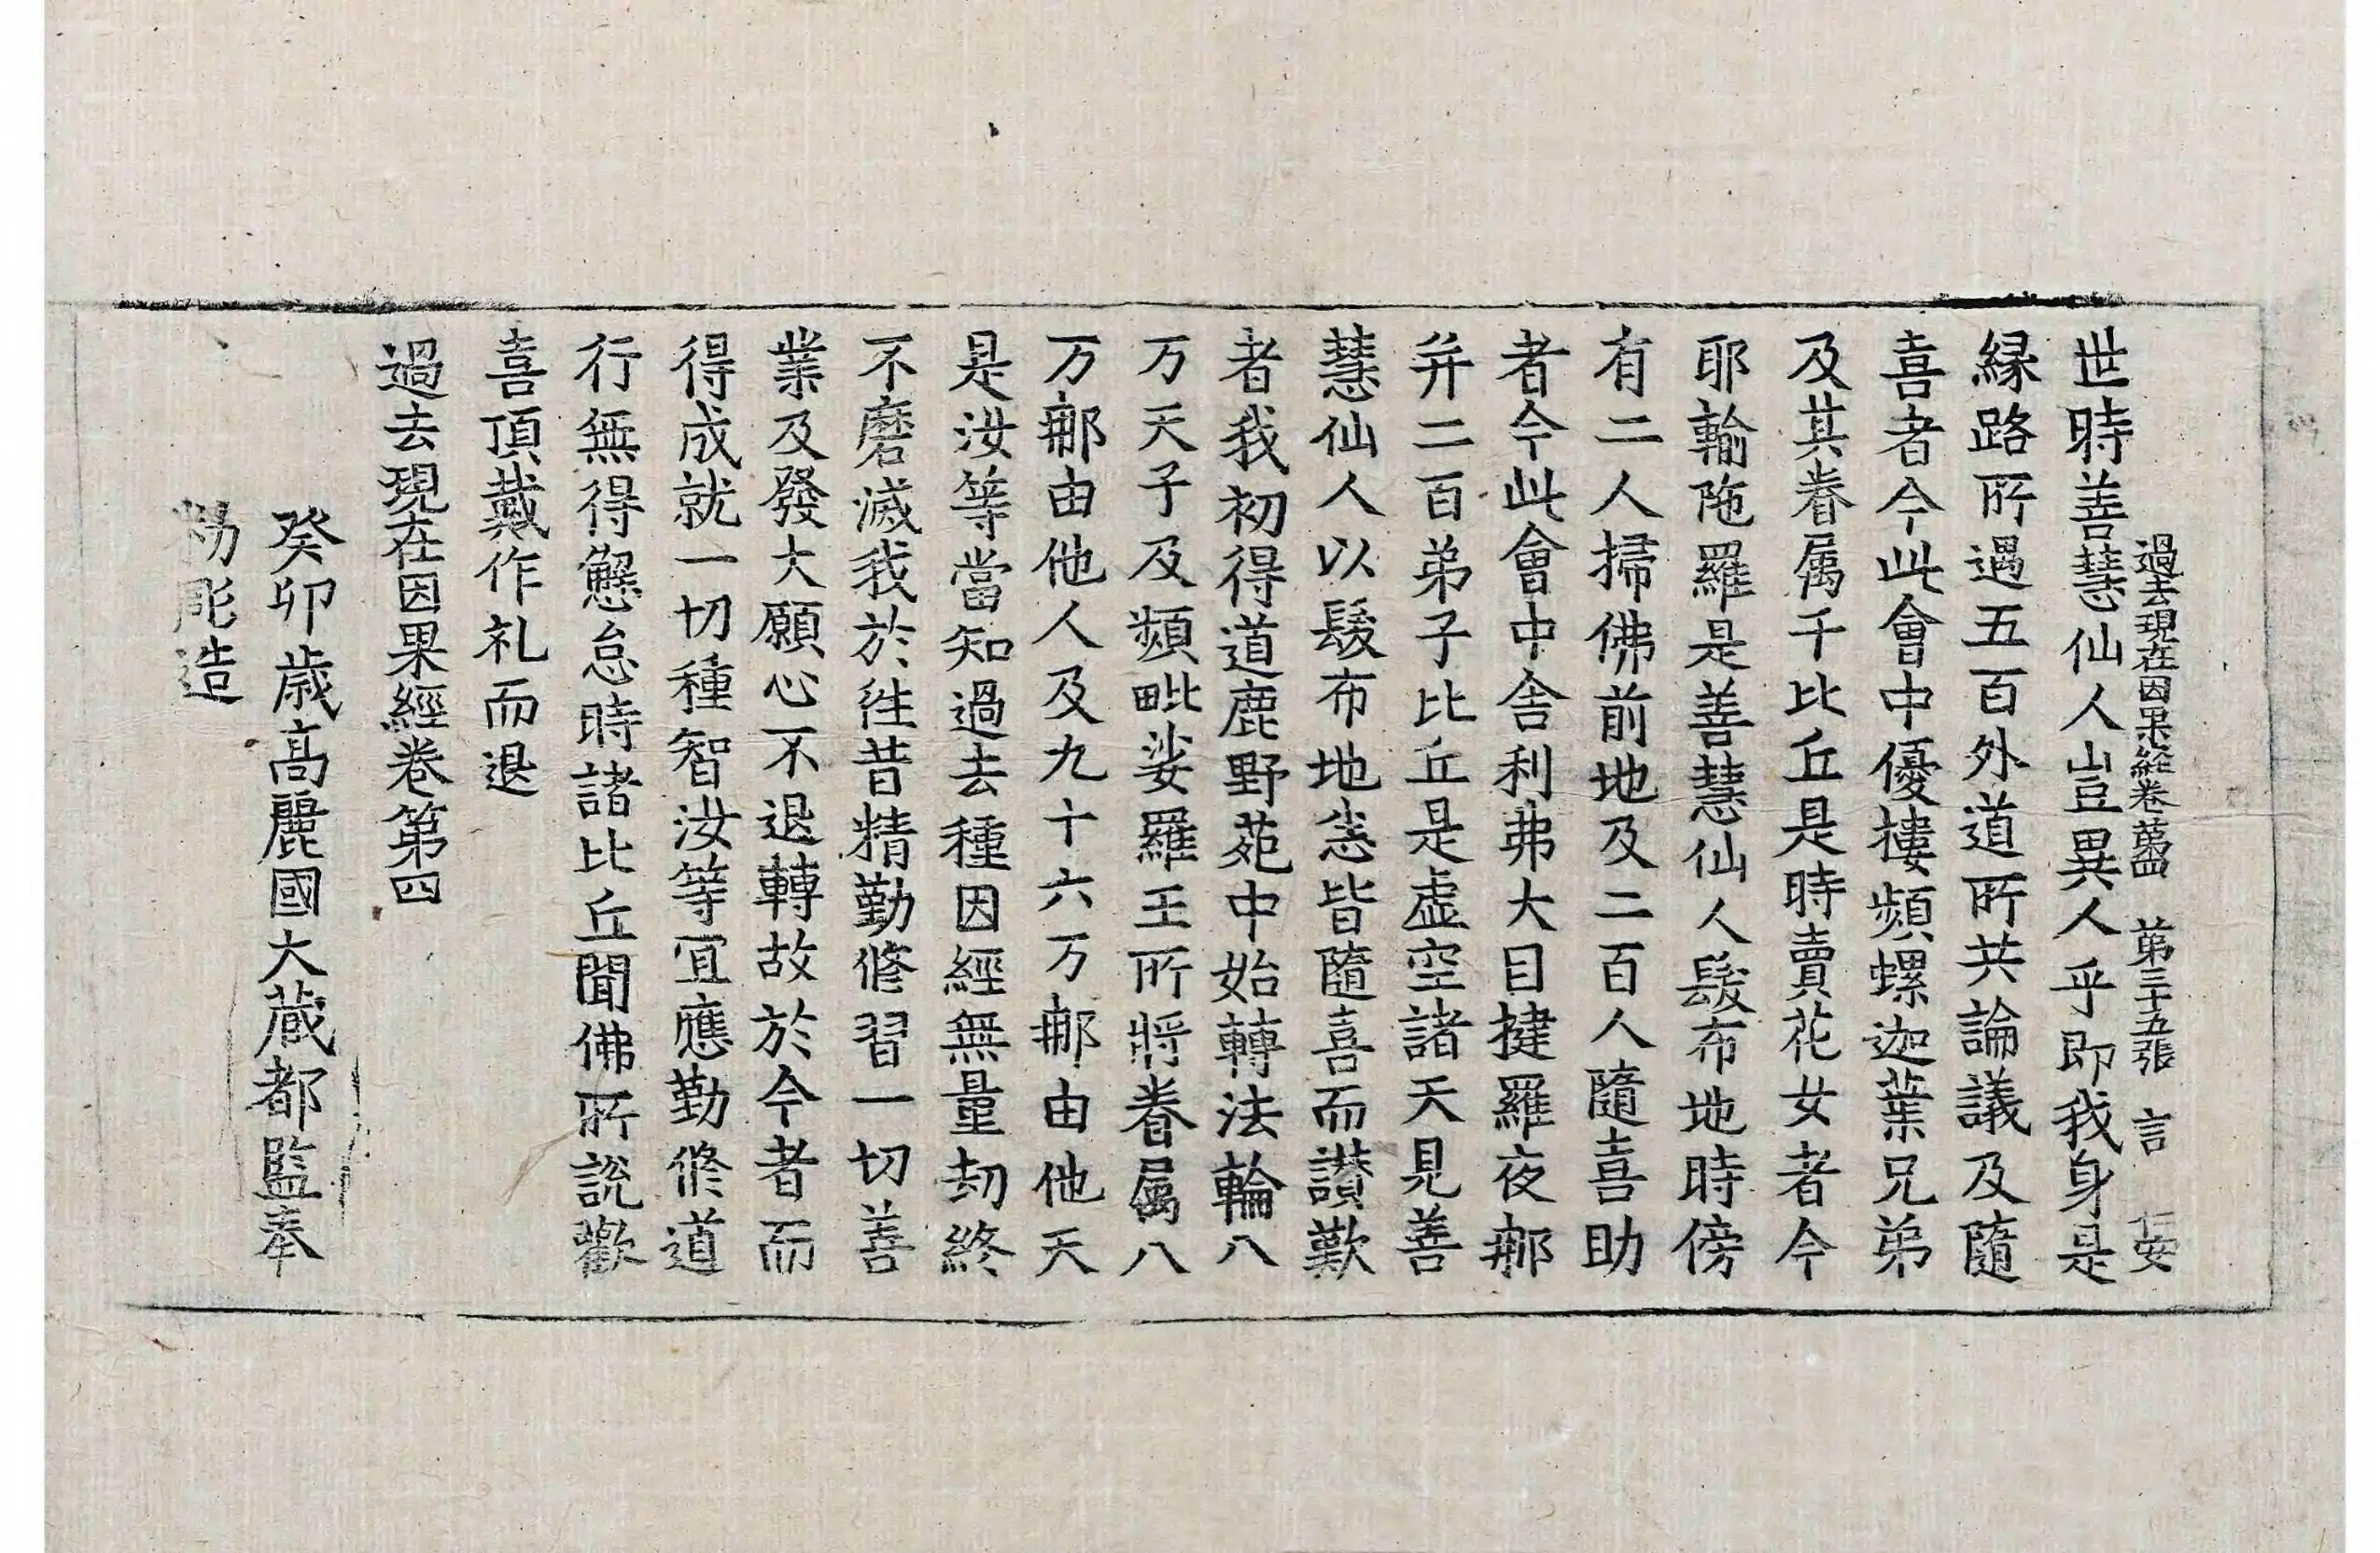 過去現在因果經卷第四 第三十五張 言 仁安
世時善慧仙人豈異人乎即我身是
縁路所遇五百外道所共論議及隨
喜者今此會中優樓頻螺迦葉兄弟
及其眷属千比丘是時賣花女者今
耶輸陁羅是善慧仙人髮布地時傍
有二人掃佛前地及二百人隨喜助
者今此會中舍利弗大目揵羅夜那
并二百弟子比丘是虚空諸天見善
慧仙人以髮布地悉皆隨喜而讃歎
者我初得道鹿野苑中始轉法輪八
万天子及頻毗娑羅王所將眷屬八
万那由他人及九十六万那由他天
是汝等當知過去種因經無量劫終
不磨滅我於徃昔精勤修習一切善
業及發大願心不退轉故於今者而
得成就一切種智汝等宜應勤修道
行無得懈怠時諸比丘聞佛所說歡
喜頂戴作礼而退
過去現在因果經卷第四
癸卯歳高麗國大蔵都監奉
勑彫造